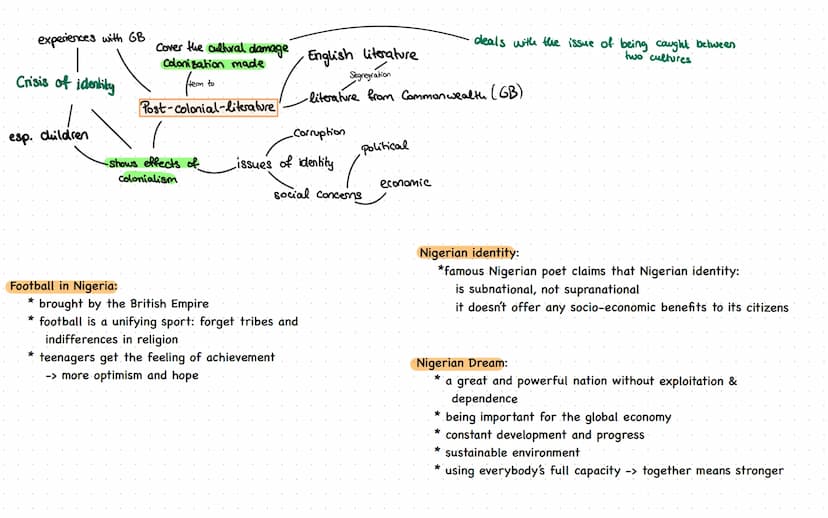 experiences with GB
Cover the cultural damage
colonisation made
deals with the issue of being caught between
two cultures
English literature
Segregation
Crisis of identity
them to
Post-colonial-literature
literature from Commonwealth (GB)
esp. children
shows effects of
colonialism
issues of identity
Corruption
political
social concerns
economic
Nigerian identity:
*famous Nigerian poet claims that Nigerian identity:
is subnational, not supranational
it doesn't offer any socio-economic benefits to its citizens
Football in Nigeria:
* brought by the British Empire
* football is a unifying sport: forget tribes and
indifferences in religion
* teenagers get the feeling of achievement
-> more optimism and hope
Nigerian Dream:
* a great and powerful nation without exploitation &
dependence
* being important for the global economy
* constant development and progress
* sustainable environment
* using everybody's full capacity -> together means stronger